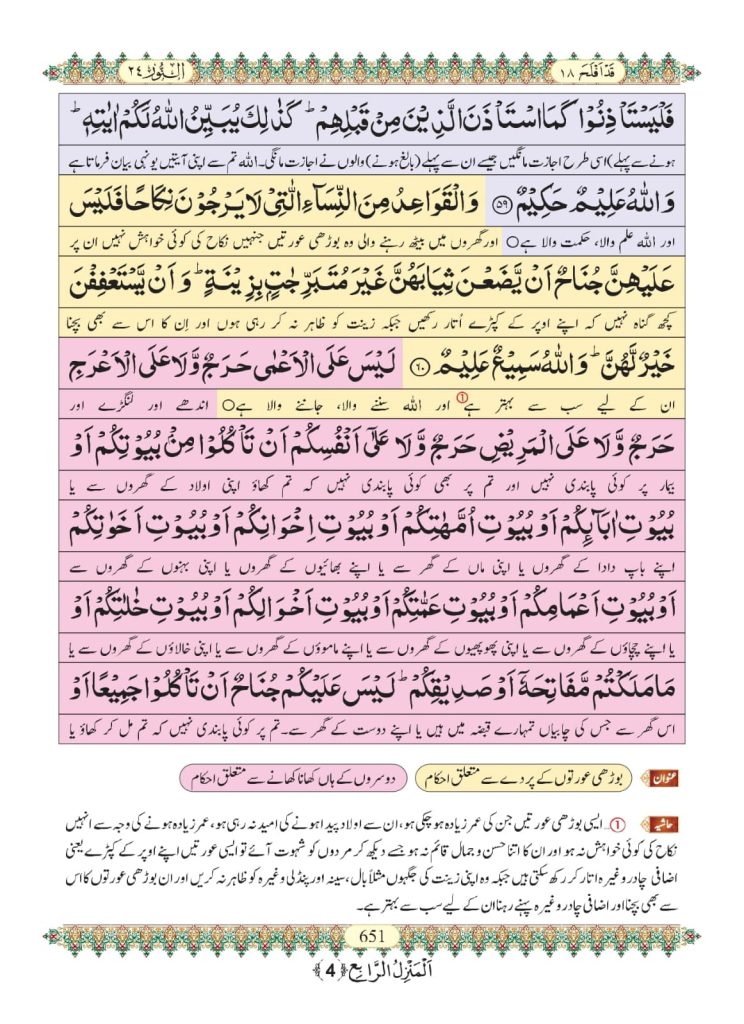 قَدْ اَفْلَحَ ١٨
اَلنُّوْر ٢٤
فَلْيَسْتَاْذِنُوْا كَمَا اسْتَاْذَنَ الَّذِيْنَ مِنْ قَبْلِهِمْ ؕ كَذٰلِكَ يُبَيِّنُ اللّٰهُ لَكُمْ اٰيٰتِهٖ ؕ
ہونے سے پہلے) اسی طرح اجازت مانگیں جیسے ان سے پہلے (بالغ ہونے) والوں نے اجازت مانگی۔ اللہ تم سے اپنی آیتیں یونہی بیان فرماتا ہے
وَاللّٰهُ عَلِيْمٌ حَكِيْمٌ ﴿۵۹﴾ وَالْقَوَاعِدُ مِنَ النِّسَآءِ الّٰتِيْ لَا يَرْجُوْنَ نِكَاحًا فَلَيْسَ
اور اللہ علم والا، حکمت والا ہے○ اور گھروں میں بیٹھ رہنے والی وہ بوڑھی عورتیں جنہیں نکاح کی کوئی خواہش نہیں ان پر
عَلَيْهِنَّ جُنَاحٌ اَنْ يَّضَعْنَ ثِيَابَهُنَّ غَيْرَ مُتَبَرِّجٰتٍۭ بِزِيْنَةٍ ؕ وَ اَنْ يَّسْتَعْفِفْنَ
کچھ گناہ نہیں کہ اپنے اوپر کے کپڑے اُتار رکھیں جبکہ زینت کو ظاہر نہ کر رہی ہوں اور اِن کا اس سے بھی بچنا
خَيْرٌ لَّهُنَّ ؕ وَاللّٰهُ سَمِيْعٌ عَلِيْمٌ ﴿۶۰﴾ لَيْسَ عَلَى الْاَعْمٰى حَرَجٌ وَّلَا عَلَى الْاَعْرَجِ
ان کے لیے سب سے بہتر ہے① اور اللہ سننے والا، جاننے والا ہے○ اندھے اور لنگڑے اور
حَرَجٌ وَّلَا عَلَى الْمَرِيْضِ حَرَجٌ وَّلَا عَلٰۤى اَنْفُسِكُمْ اَنْ تَاْكُلُوْا مِنْۢ بُيُوْتِكُمْ اَوْ
بیمار پر کوئی پابندی نہیں اور تم پر بھی کوئی پابندی نہیں کہ تم کھاؤ اپنی اولاد کے گھروں سے یا
بُيُوْتِ اٰبَآئِكُمْ اَوْ بُيُوْتِ اُمَّهٰتِكُمْ اَوْ بُيُوْتِ اِخْوَانِكُمْ اَوْ بُيُوْتِ اَخَوٰتِكُمْ
اپنے باپ دادا کے گھروں یا اپنی ماں کے گھر سے یا اپنے بھائیوں کے گھروں یا اپنی بہنوں کے گھروں سے
اَوْ بُيُوْتِ اَعْمَامِكُمْ اَوْ بُيُوْتِ عَمّٰتِكُمْ اَوْ بُيُوْتِ اَخْوَالِكُمْ اَوْ بُيُوْتِ خٰلٰتِكُمْ اَوْ
یا اپنے چچاؤں کے گھروں سے یا اپنی پھوپھیوں کے گھروں سے یا اپنے ماموؤں کے گھروں سے یا اپنی خالاؤں کے گھروں سے یا
مَا مَلَكْتُمْ مَّفَاتِحَهٗۤ اَوْ صَدِيْقِكُمْ ؕ لَيْسَ عَلَيْكُمْ جُنَاحٌ اَنْ تَاْكُلُوْا جَمِيْعًا اَوْ
اس گھر سے جس کی چابیاں تمہارے قبضہ میں ہیں یا اپنے دوست کے گھر سے۔ تم پر کوئی پابندی نہیں کہ تم مل کر کھاؤ یا
عنوان بوڑھی عورتوں کے پردے سے متعلق احکام دوسروں کے ہاں کھانا کھانے سے متعلق احکام
حاشیہ ①... ایسی بوڑھی عورتیں جن کی عمر زیادہ ہو چکی ہو، ان سے اولاد پیدا ہونے کی امید نہ رہی ہو، عمر زیادہ ہونے کی وجہ سے انہیں
نکاح کی کوئی خواہش نہ ہو اور ان کا اتنا حسن و جمال قائم نہ ہو جسے دیکھ کر مردوں کو شہوت آئے تو ایسی عورتیں اپنے اوپر کے کپڑے یعنی
اضافی چادر وغیرہ اتار کر رکھ سکتی ہیں جبکہ وہ اپنی زینت کی جگہوں مثلاً بال، سینہ اور پنڈلی وغیرہ کو ظاہر نہ کریں اور ان بوڑھی عورتوں کا اس
سے بھی بچنا اور اضافی چادر وغیرہ پہنے رہنا ان کے لیے سب سے بہتر ہے۔
651
اَلْمَنْزِلُ الرَّابِع ﴿4﴾